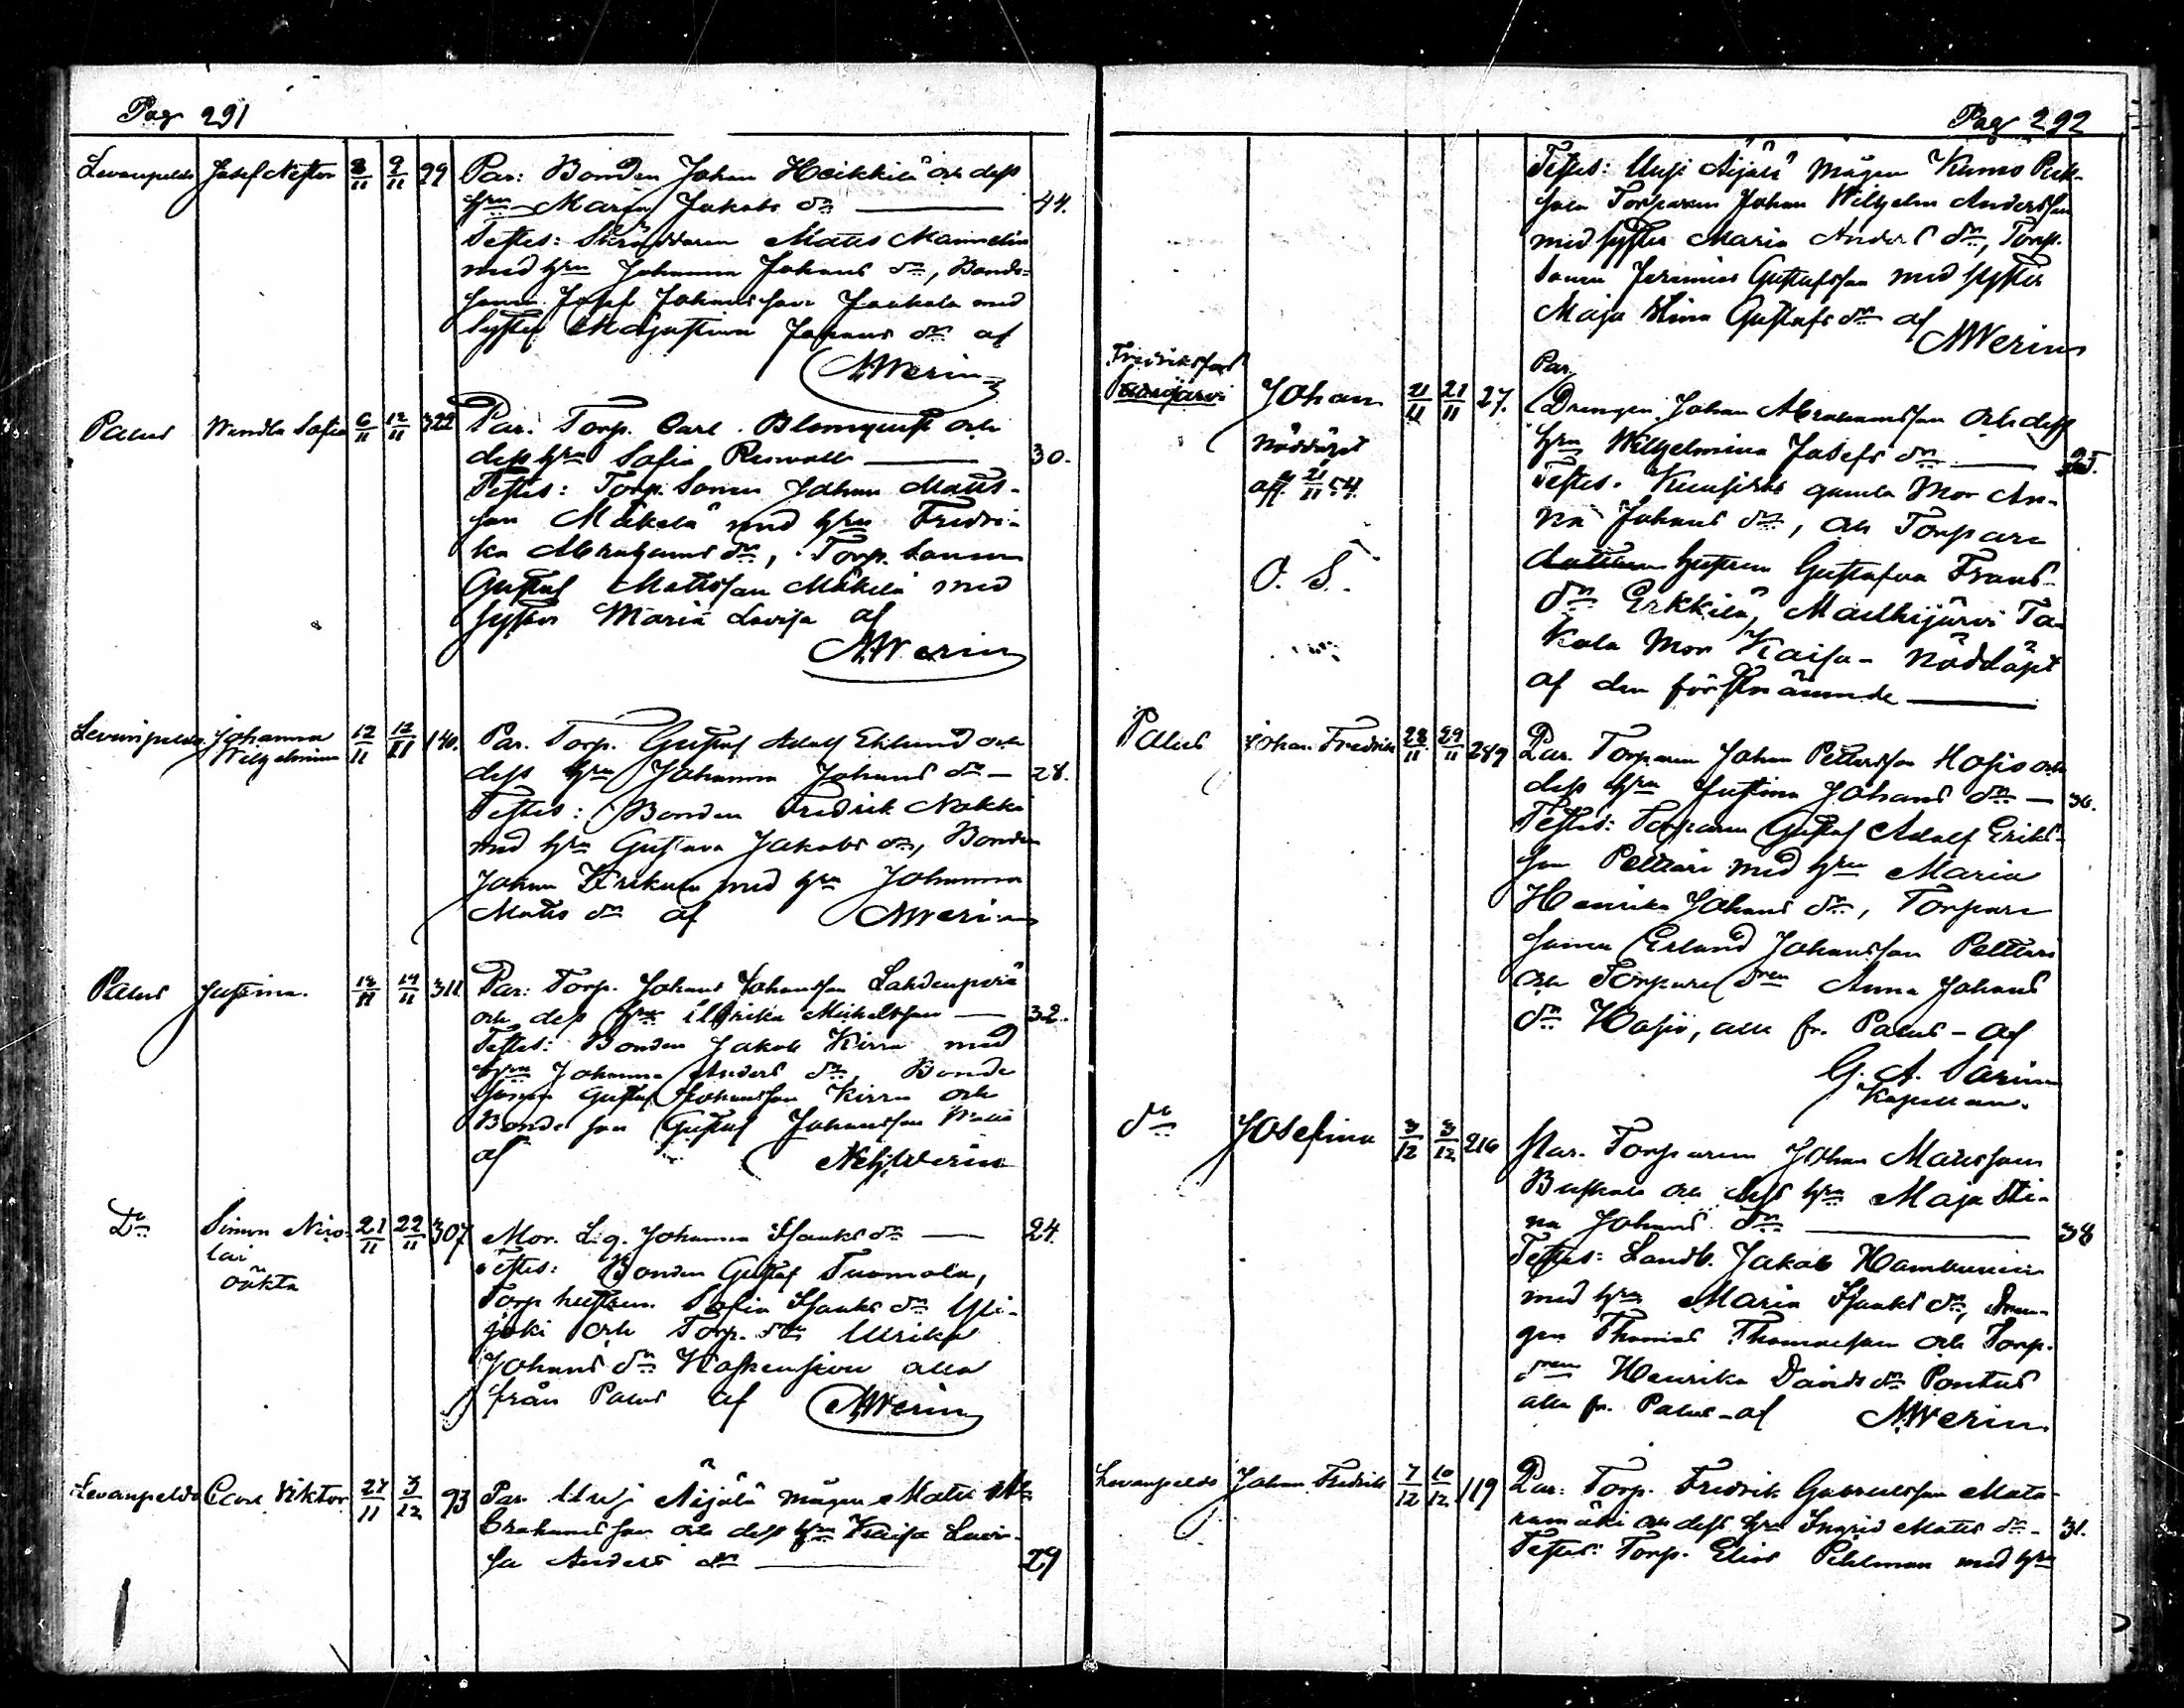 Pag 291
Levanpelds Josef Nestor 8/11 9/11 99 Par: Bonden Johan Heikkilä och dess
hru Maria Jakobs dr 44.
Testes: Skräddaren Matts Mannelin
med hru Johanna Johans dr, Bonde-
sonen Josef Johansson Jaakola med
syster Maja Stina Johans dr af
NWerin
Palus Wendla Sofia 6/11 12/11 322 Par. Torp. Carl Blomquist och
dess hru Sofia 30.
Testes: Torp. Sonen Johan Matts-
son Mäkelä med hru Fredri-
ka Abrahams dr, Torp. Sonen
Gustaf Mattsson Mäkelä med
syster Maria Lovisa af
NWerin
Levanpelds Johanna Wilhelmina 12/11 12/11 140. Par. Torp. Gustaf Adolf Eklund och
dess hru Johanna Johans dr 28.
Testes: Bonden Fredrik Nokki
med hru Gustava Jakobs dr, Bonden
Johan med hru Johanna
Matts dr af NWerin
Palus Justina. 12/11 14/11 311 Par: Torp. Johans Johansson Lahdenperä
och dess hru Ulrika Michelsson 32.
Testes: Bonden Jakob Kirra med
hru Johanna Anders dr, Bonde
Sonen Gustaf Johansson Kirra och
Bonde son Gustaf Johansson
af NWerin
Do Simon Nico- 21/11 22/11 307 Mor. L. q. Johanna Isaks dr 24.
lai
oäkta
Testes: Bonden Gustaf Tuomola,
Torp hustrun Sofia Isaks dr Yli-
joki och Torp. dr Ulrika
Johans dr Koskensivu alla
från Palus af NWerin
Levanpelds Carl Viktor 27/11 3/12 93 Par. Uusi Äijälä mågen Matts A-
brahamsson och dess hru Kaisa Lovi-
sa Anders dr 29
Pag 292
Testes: Uusi Äijälä mågen
Torparen Johan Wilhelm Andersson
med syster Maria Anders dr, Torp.
Sonen Jeremias Gustafsson med syster
Maja Stina Gustafs dr af
NWerin
Fredriksfors
Par.
Johan 21/11 21/11 27. Drengen Johan Abrahamsson och dess
Nöddöpt hru Wilhelmina Josefs dr
aff. 21/11 54. Testes. gamla Mor An-
na Johans dr, och Torpare
O. S. hustrun Gustafva Frans
dr Erkkilä, Mailhijärvi Ta-
kala Mor Kaisa - Nöddöpt
af den förstnämnde
Palus Johan Fredrik 28/11 29/11 289 Par. Torparen Johan Pettersson Hosio och
dess hru Justina Johans dr 36.
Testes: Torparen Gustaf Adolf Eriks-
son Pelttari med hru Maria
Henrika Johans dr, Torpare
sonen Erland Johansson Pelttari
och Torpare dren Anna Johans
dr Hosio, alla fr. Palus - af
G. A. Sarin
Kapellan.
Do Josefina 3/12 3/12 216 Par. Torparen Johan Matsson
och dess hru Maja Sti-
na Johans dr 38
Testes: Landb. Jakob
med hru Maria Isaks dr, Dren-
gen Thomas Thomasson och Torp.
dren Henrika Davids dr Pontus
alla fr. Palus - af NWerin
Levanpelds Johan Fredrik 7/12 10/12 119 Par: Torp. Fredrik Gabrielsson Mata-
ramäki och dess hru Ingrid Matts dr 31.
Testes: Torp. Elias Pehlman med hru